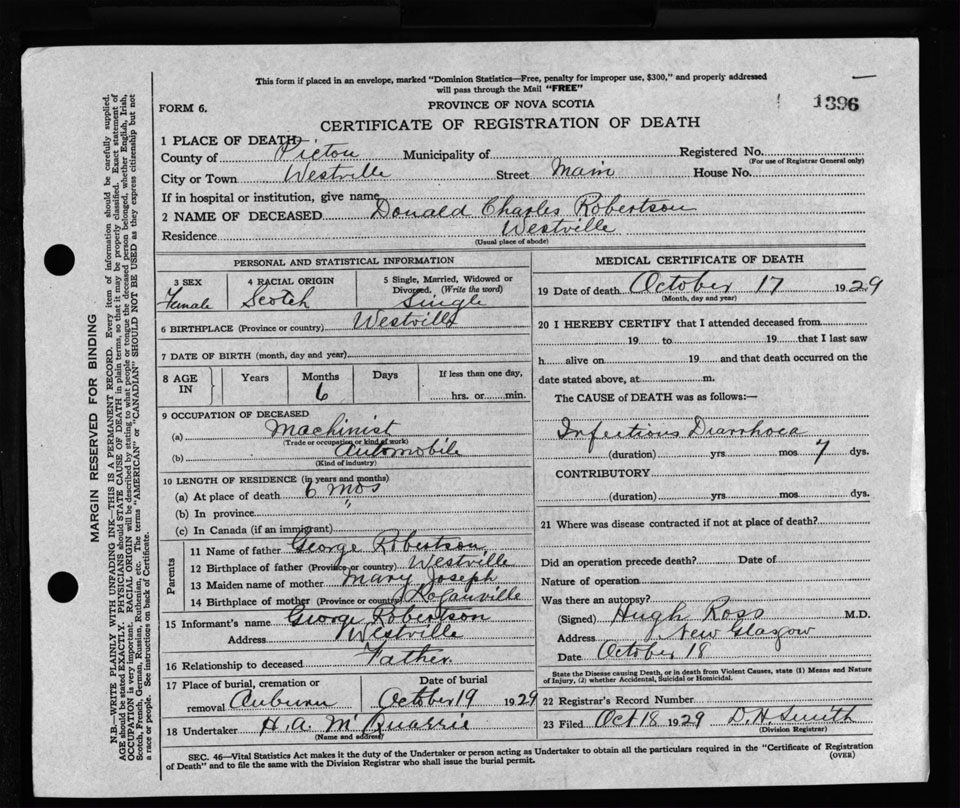 This form if placed in an envelope, marked "Dominion Statistics—Free, penalty for improper use, $300," and properly addressed
will pass through the Mail "FREE"
FORM 6.
PROVINCE OF NOVA SCOTIA
1396
CERTIFICATE OF REGISTRATION OF DEATH
1 PLACE OF DEATH
County of Pictou Municipality of Registered No.
(For use of Registrar General only)
City or Town Westville Street Main House No.
If in hospital or institution, give name
2 NAME OF DECEASED Donald Charles Robertson
Residence Westville
(Usual place of abode)
PERSONAL AND STATISTICAL INFORMATION
3 SEX 4 RACIAL ORIGIN 5 Single, Married, Widowed or
Divorced. (Write the word)
Female Scotch Single
6 BIRTHPLACE (Province or country) Westville
7 DATE OF BIRTH (month, day and year)
8 AGE IN Years Months Days If less than one day,
6 hrs. or min.
9 OCCUPATION OF DECEASED
(a) Machinist
(Trade or occupation or kind of work)
(b) Automobile
(Kind of industry)
10 LENGTH OF RESIDENCE (in years and months)
(a) At place of death 6 mos
(b) In province "
(c) In Canada (if an immigrant)
Parents
11 Name of father George Robertson
12 Birthplace of father (Province or country) Westville
13 Maiden name of mother Mary Joseph
14 Birthplace of mother (Province or country)
15 Informant's name George Robertson
Address Westville
16 Relationship to deceased Father.
17 Place of burial, cremation or removal Auburn
Date of burial October 19 1929
18 Undertaker H. A. McQuarrie
(Name and address)
MEDICAL CERTIFICATE OF DEATH
19 Date of death October 17 1929
(Month, day and year)
20 I HEREBY CERTIFY that I attended deceased from
19 to 19 that I last saw
h alive on 19 and that death occurred on the
date stated above, at m.
The CAUSE of DEATH was as follows:—
Infectious Diarrhoea
(duration) yrs mos 7 dys.
CONTRIBUTORY
(duration) yrs mos dys.
21 Where was disease contracted if not at place of death?
Did an operation precede death? Date of
Nature of operation
Was there an autopsy?
(Signed) Hugh Ross M.D.
Address New Glasgow
Date October 18
State the Disease causing Death, or in death from Violent Causes, state (1) Means and Nature
of Injury, (2) whether Accidental, Suicidal or Homicidal.
22 Registrar's Record Number
23 Filed Oct 18 1929 D. H. Smith
(Division Registrar)
SEC. 46—Vital Statistics Act makes it the duty of the Undertaker or person acting as Undertaker to obtain all the particulars required in the "Certificate of Registration
of Death" and to file the same with the Division Registrar who shall issue the burial permit.
(OVER)
MARGIN RESERVED FOR BINDING
N.B.—WRITE PLAINLY WITH UNFADING INK—THIS IS A PERMANENT RECORD. Every item of information should be carefully supplied.
AGE should be stated EXACTLY. PHYSICIANS should STATE CAUSE OF DEATH in plain terms, so that it may be properly classified. Exact statement of
OCCUPATION is very important. RACIAL ORIGIN will be described by stating to what people or tongue the deceased person belonged, whether English, Irish,
Scotch, French, German, Russian, Ruthenian, etc. The terms "AMERICAN" or "CANADIAN" SHOULD NOT BE USED as they express citizenship but not
a race or people. See instructions on back of Certificate.